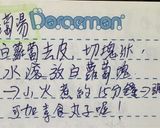 蔔湯 Doraemon
白蘿蔔去皮,切塊狀,
水滾放白蘿蔔燉
→小火煮約15分鐘→
可加素食丸子喔!